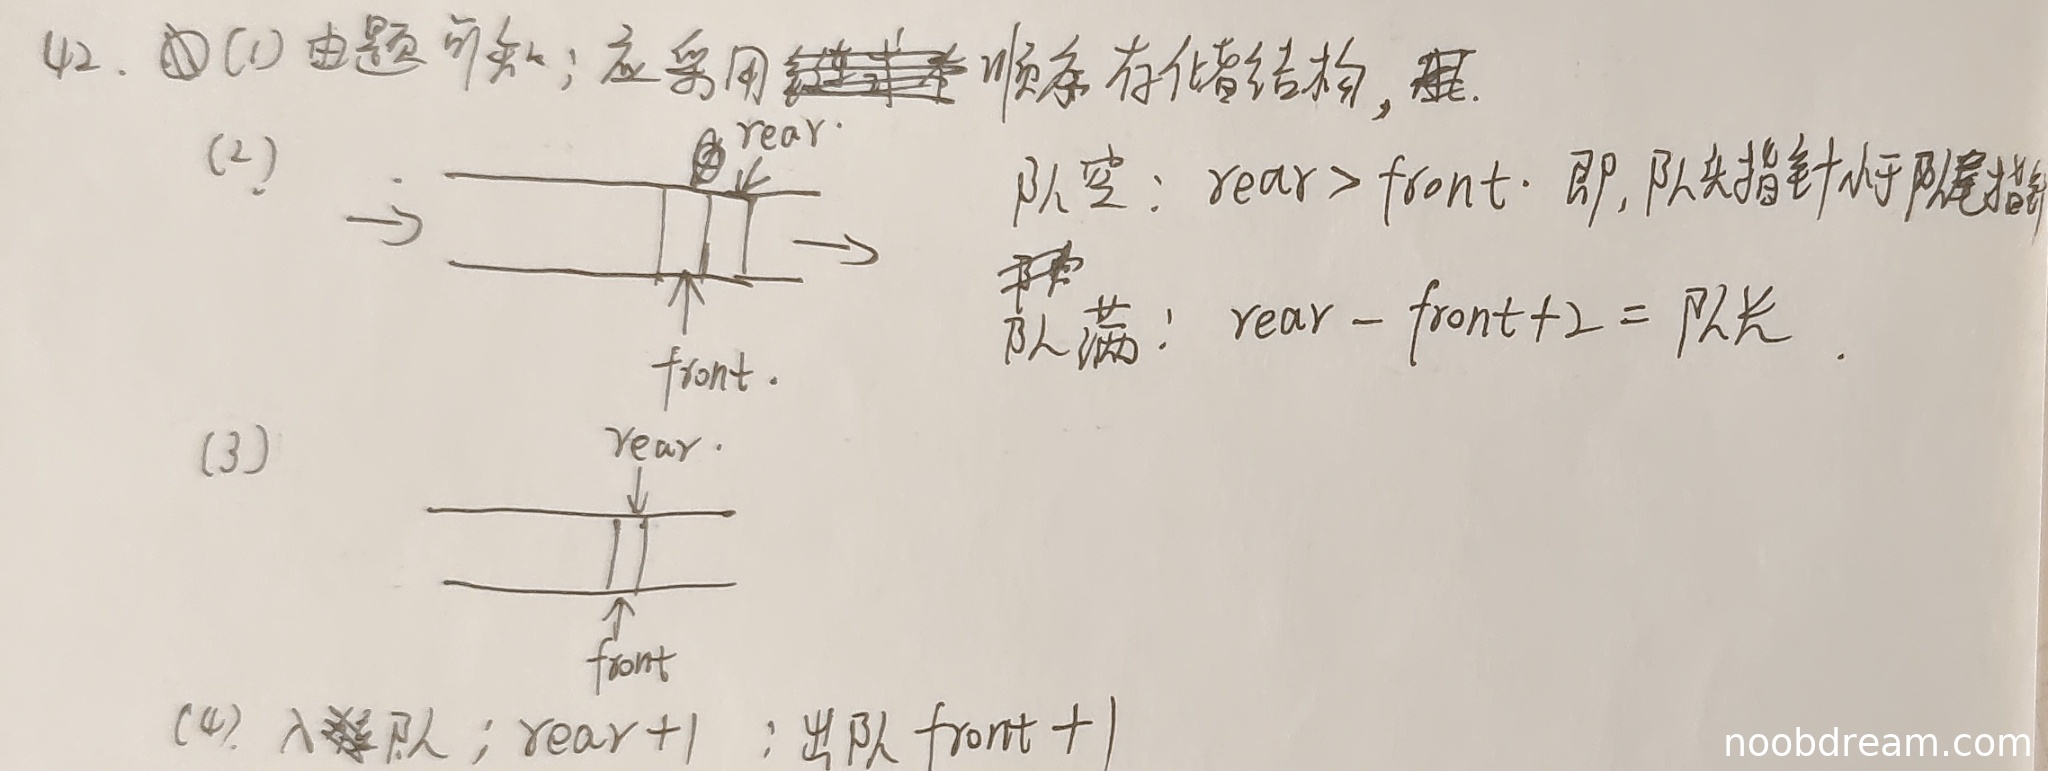 42. (1) 由题可知；应采用顺序存储结构，
(2)
rear.
队空： rear > front. 即，队头指针小于队尾指针
front.
队满： rear - front+2 = 队长.
(3)
rear.
front
(4). 入队；rear+1 ；出队 front+1
noobdream.com